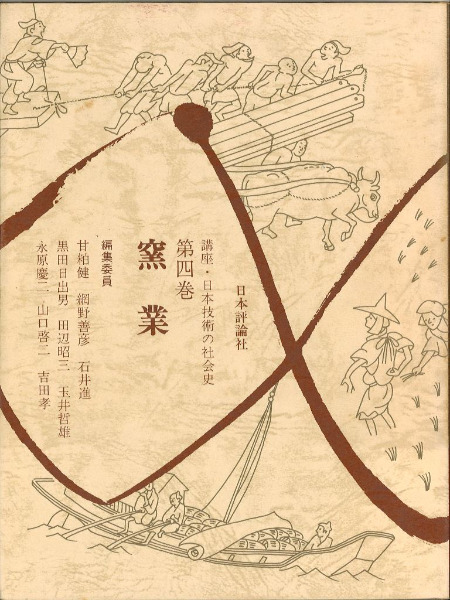 日本評論社
講座・日本技術の社会史
第四巻
窯業
編集委員
甘粕健 網野善彦 石井進
黒田日出男 田辺昭三 玉井哲雄
永原慶二 山口啓二 吉田孝